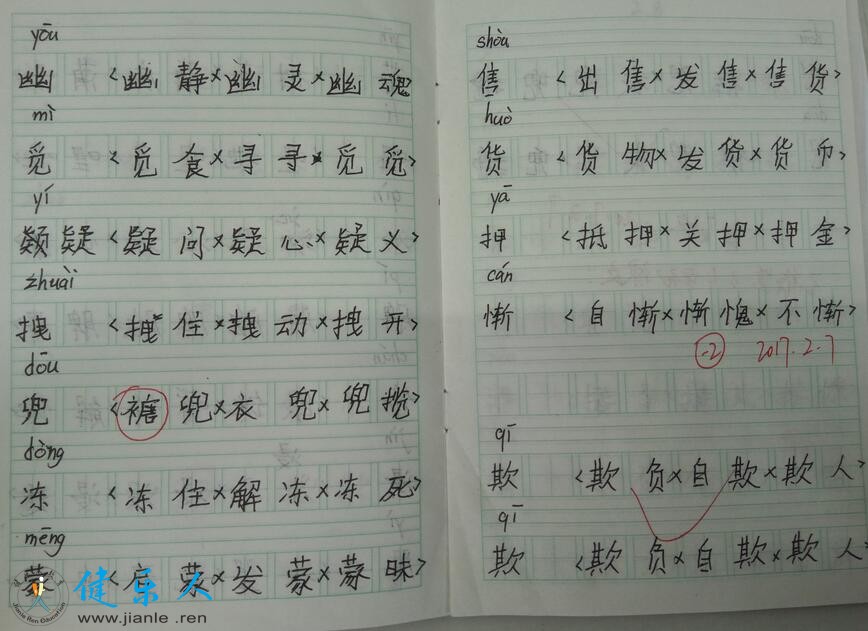 yōu
幽 <幽 静×幽 灵×幽 魂
mì
觅 <觅 食×寻 寻×觅 觅>
yí
疑 <疑 问×疑 心×疑 义>
zhuài
拽 <拽 住×拽 动×拽 开>
dōu
兜 <裤 兜×衣 兜×兜 揽>
dòng
冻 <冻 住×解 冻×冻 死>
mēng
蒙 <启 蒙×发 蒙×蒙 昧>
健乐人
Jianle Ren Education
www.jianle.ren
shòu
售 <出 售×发 售×售 货>
huò
货 <货 物×发 货×货 币>
yā
押 <抵 押×关 押×押 金>
cán
惭 <自 惭×惭 愧×不 惭>
-2 2017.2.7
qī
欺 <欺 负×自 欺×欺 人>
qī
欺 <欺 负×自 欺×欺 人>